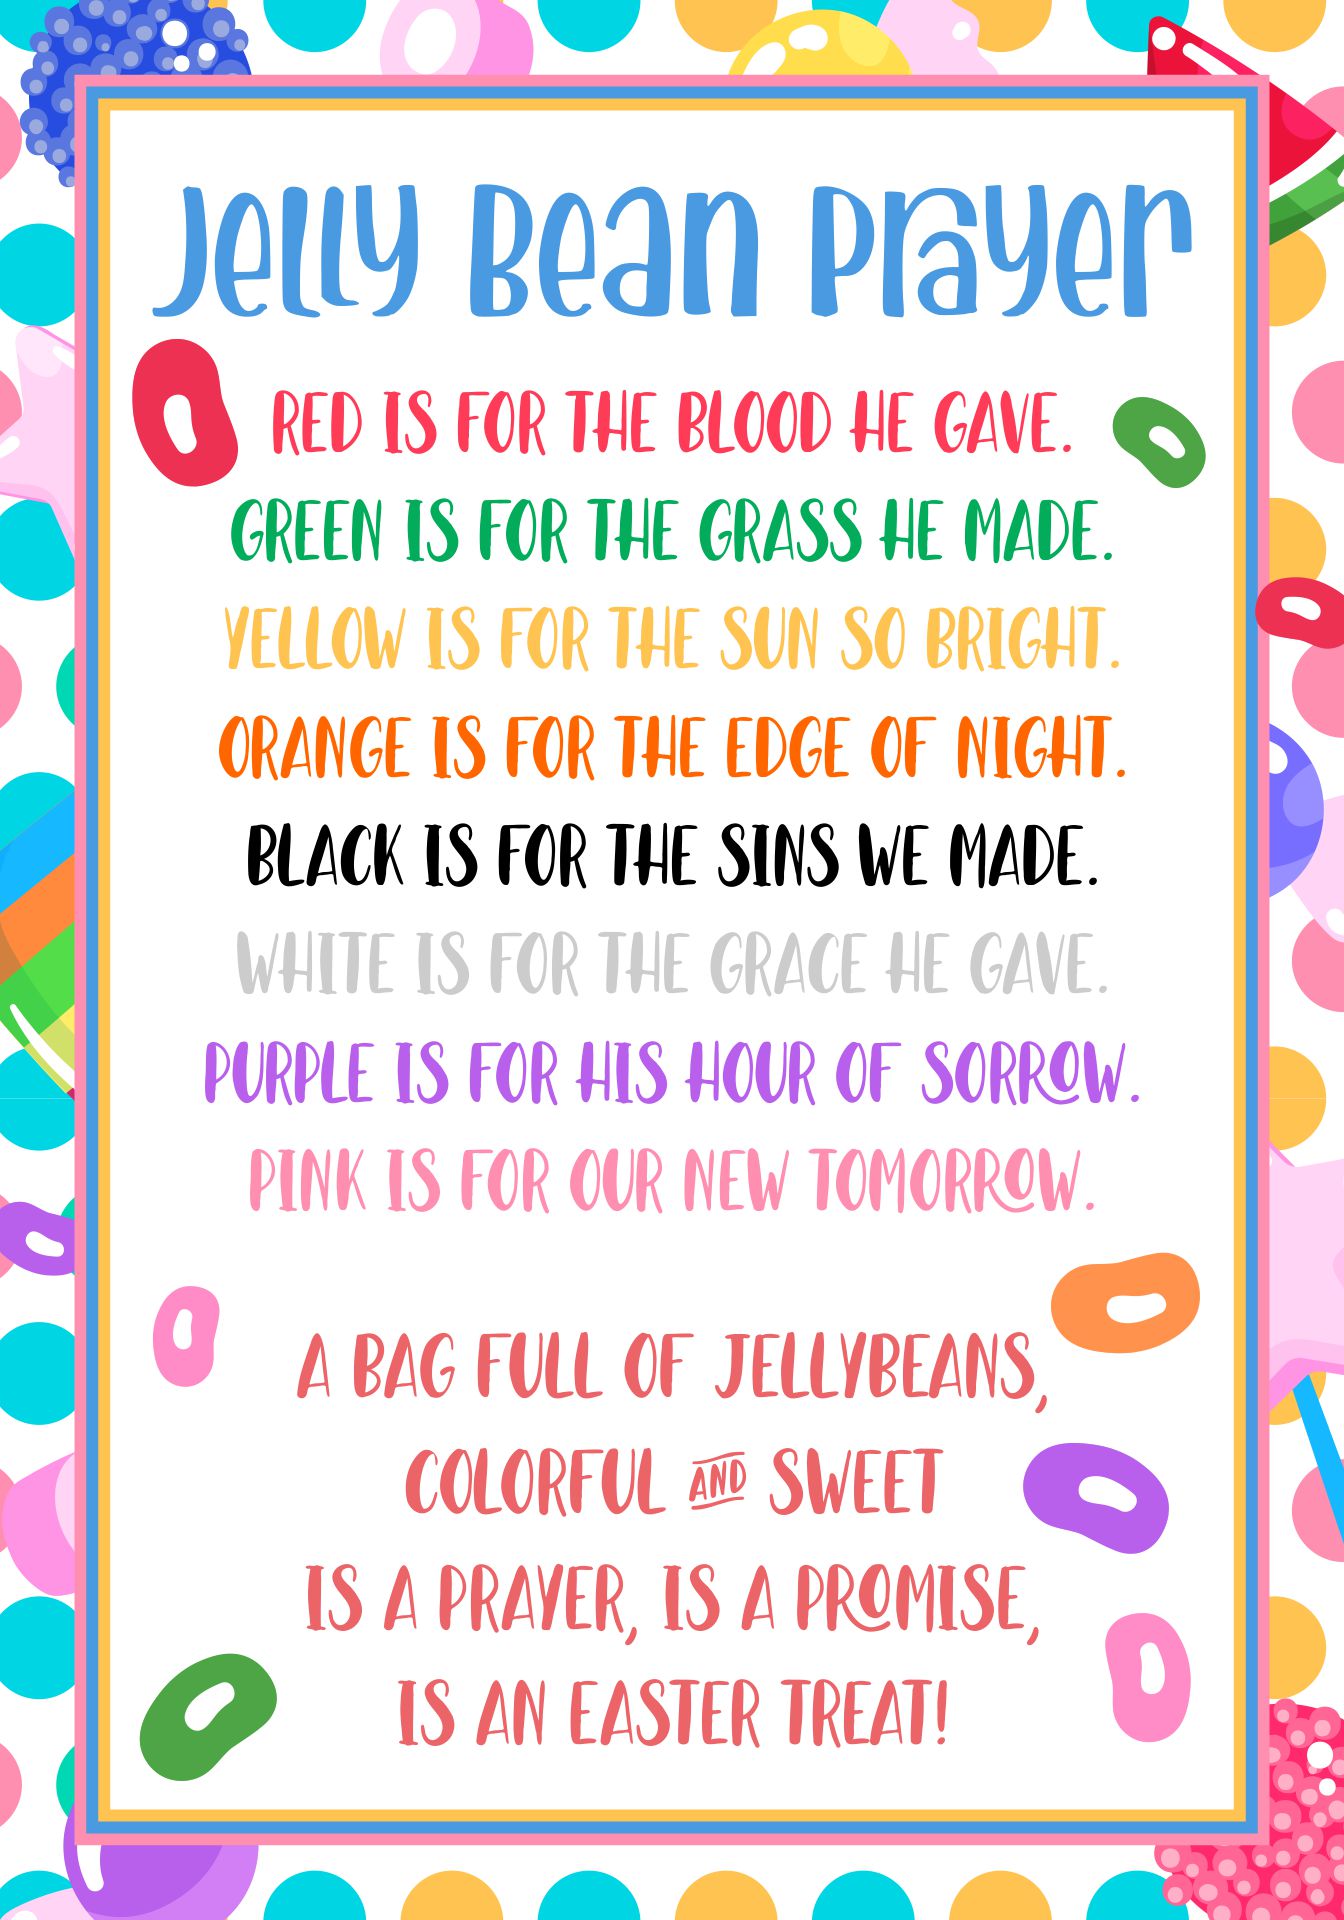 Jelly Bean Prayer
RED IS FOR THE BLOOD HE GAVE.
GREEN IS FOR THE GRASS HE MADE.
YELLOW IS FOR THE SUN SO BRIGHT.
ORANGE IS FOR THE EDGE OF NIGHT.
BLACK IS FOR THE SINS WE MADE.
WHITE IS FOR THE GRACE HE GAVE.
PURPLE IS FOR HIS HOUR OF SORROW.
PINK IS FOR OUR NEW TOMORROW.
A BAG FULL OF JELLYBEANS,
COLORFUL AND SWEET
IS A PRAYER, IS A PROMISE,
IS AN EASTER TREAT!